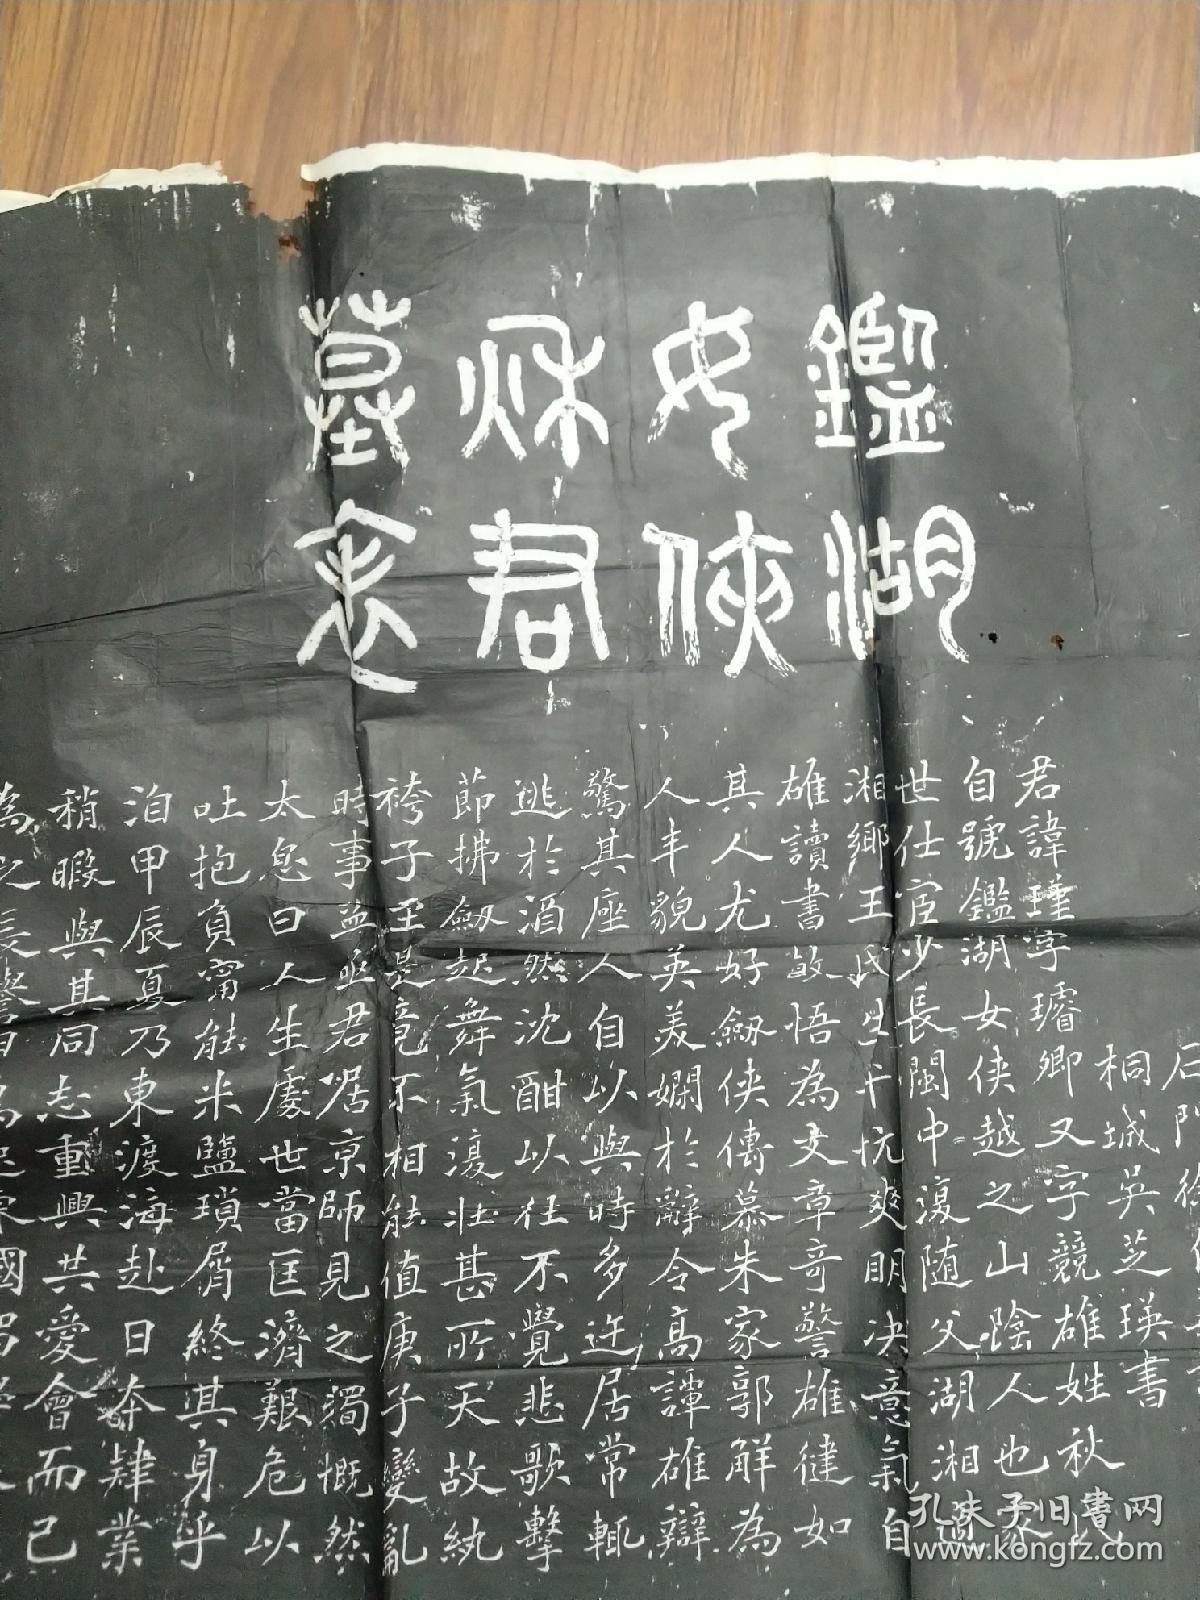 鑑湖
女俠
秋君
墓表
石門徐
桐城吳芝瑛書
君諱瑾字璿卿又字競雄姓秋氏
自號鑑湖女俠越之山陰人也家
世仕宦少長閩中復随父湖湘適
湘鄉王氏生十亢爽明决意氣自
雄讀書敏悟為文章奇警雄健如
其人尤好劍俠傳慕朱家郭解為
人丰貌英美嫻於辭令高譚雄辯
驚其座人自以與時多迕居常輒
逃於酒然沈酣以往不覺悲歌擊
節拂劍起舞氣復壯甚所天故紈
袴子至是竟不相能值庚子變亂
時事益亟君居京師見之獨慨然
太息曰人生處世當匡濟艱危以
吐抱負甯能米鹽瑣屑終其身乎
洎甲辰夏乃東渡海赴日本肄業
稍暇與其同志重興共愛會而己
為之長
孔夫子旧書网
www.kongfz.com